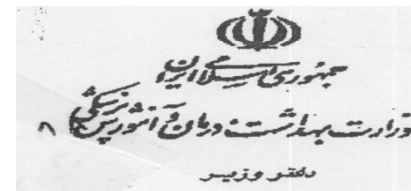 جمهوری اسلامی ایران
وزارت بهداشت، درمان و آموزش پزشکی
دفتر وزیر